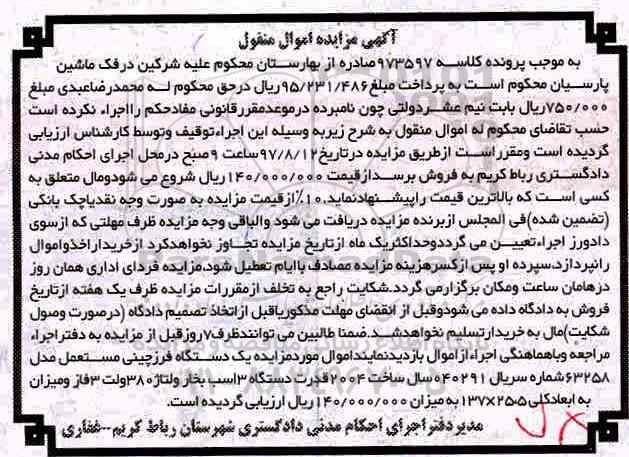 آگهی مزایده اموال منقول
به موجب پرونده کلاسه ۹۷۳۵۹۷صادره از بهارستان محکوم علیه شرکین درفک ماشین
پارسیان محکوم است به پرداخت مبلغ۹۵/۲۳۱/۴۸۶ریال درحق محکوم له محمدرضاعبدی مبلغ
۷۵۰/۰۰۰ریال بابت نیم عشردولتی چون نامبرده درموعدمقررقانونی مفادحکم رااجراء نکرده است
حسب تقاضای محکوم له اموال منقول به شرح زیربه وسیله این اجراءتوقیف وتوسط کارشناس ارزیابی
گردیده است ومقرراست ازطریق مزایده درتاریخ۹۷/۸/۱۲ساعت ۹صبح درمحل اجرای احکام مدنی
دادگستری رباط کریم به فروش برسد.ازقیمت ۱۴۰/۰۰۰/۰۰۰ریال شروع می شودومال متعلق به
کسی است که بالاترین قیمت راپیشنهادنماید.۱۰٪ازقیمت مزایده به صورت وجه نقدیاچک بانکی
(تضمین شده)فی المجلس ازبرنده مزایده دریافت می شود والباقی وجه مزایده ظرف مهلتی که ازسوی
دادورز اجراءتعیین می گرددوحداکثریک ماه ازتاریخ مزایده تجاوز نخواهدکرد ازخریداراخذواموال
رانپردازد.سپرده او پس ازکسرهزینه مزایده مصادف باایام تعطیل شود.مزایده فردای اداری همان روز
درهامان ساعت ومکان برگزارمی گردد.شکایت راجع به تخلف ازمقررات مزایده ظرف یک هفته ازتاریخ
فروش به دادگاه داده می شودوقبل از انقضای مهلت مذکوریاقبل ازاتخاذ تصمیم دادگاه (درصورت وصول
شکایت)مال به خریدارتسلیم نخواهدشد.ضمنا طالبین می توانندظرف۷روزقبل از مزایده به دفتراجراء
مراجعه وباهماهنگی اجراء ازاموال بازدیدنماینداموال موردمزایده یک دستگاه فرزچینی مستعمل مدل
۶۳۲۵۸شماره سریال ۰۴۰۲۹۱سال ساخت ۲۰۰۴قدرت دستگاه ۳اسب بخار ولتاژ۳۸۰ولت ۳فاز ومیزان
به ابعادکلی۲۵.۵×۱۳۷به میزان ۱۴۰/۰۰۰/۰۰۰ریال ارزیابی گردیده است.
مدیردفتراجرای احکام مدنی دادگستری شهرستان رباط کریم--غفاری